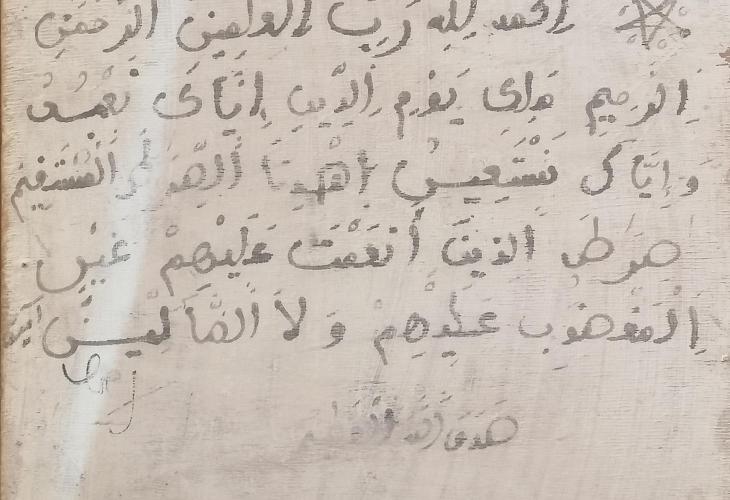 الحمد لله رب العلمين الرحمن
الرحيم ملك يوم الدين إياك نعبد
وإياك نستعين اهدنا الصراط المستقيم
صراط الذين أنعمت عليهم غير
المغضوب عليهم ولا الضالين
صدق الله العظيم